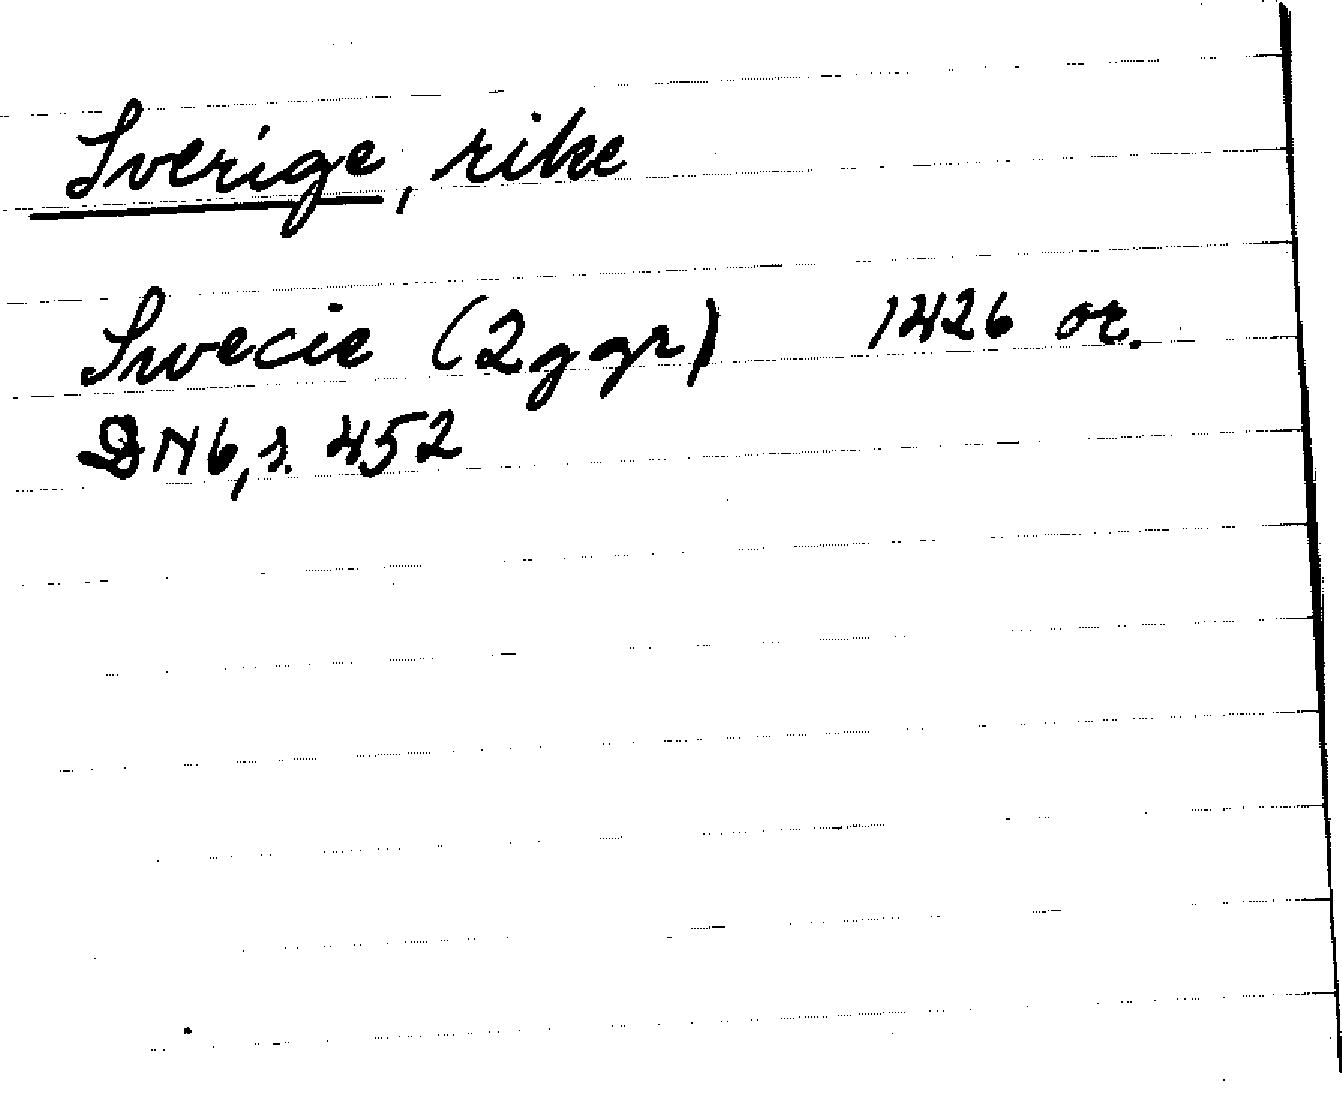 Sverige, rike
Swecie (2 ggr) 1426 or.
DN 6, s. 452